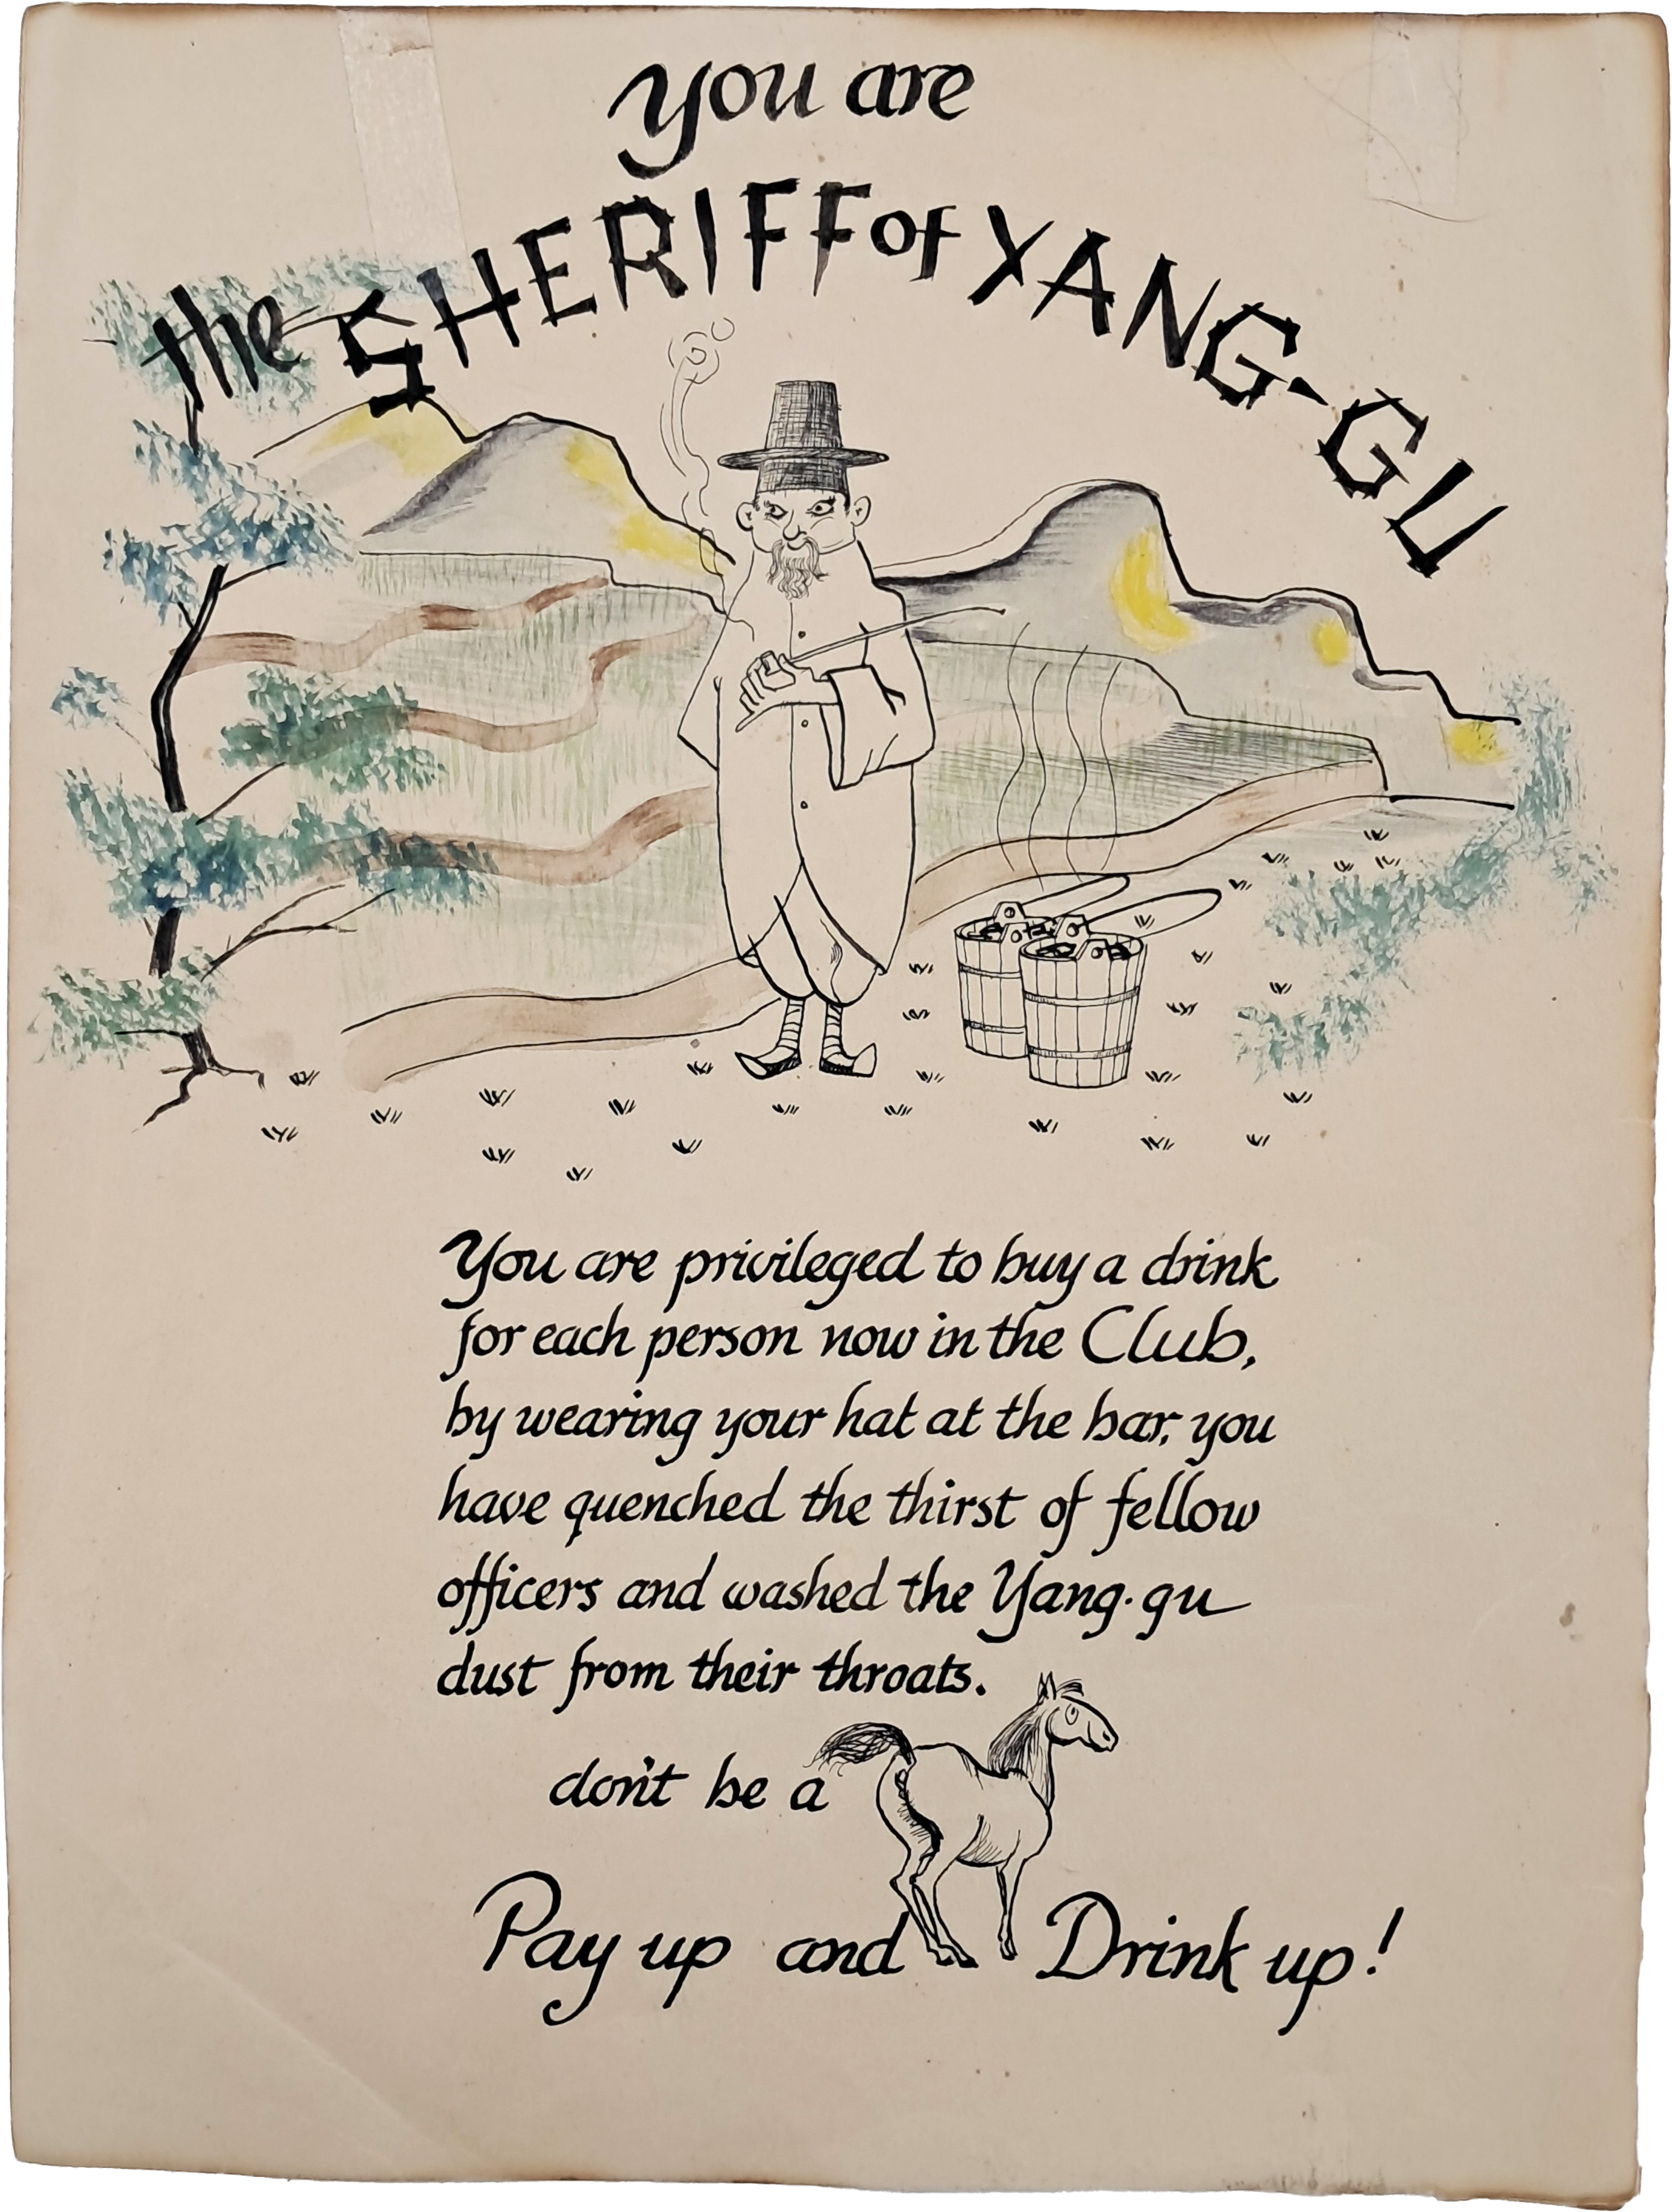 you are
the SHERIFF of YANG-GU
You are privileged to buy a drink
for each person now in the Club,
by wearing your hat at the bar, you
have quenched the thirst of fellow
officers and washed the Yang-gu
dust from their throats.
don't be a
Pay up and Drink up!